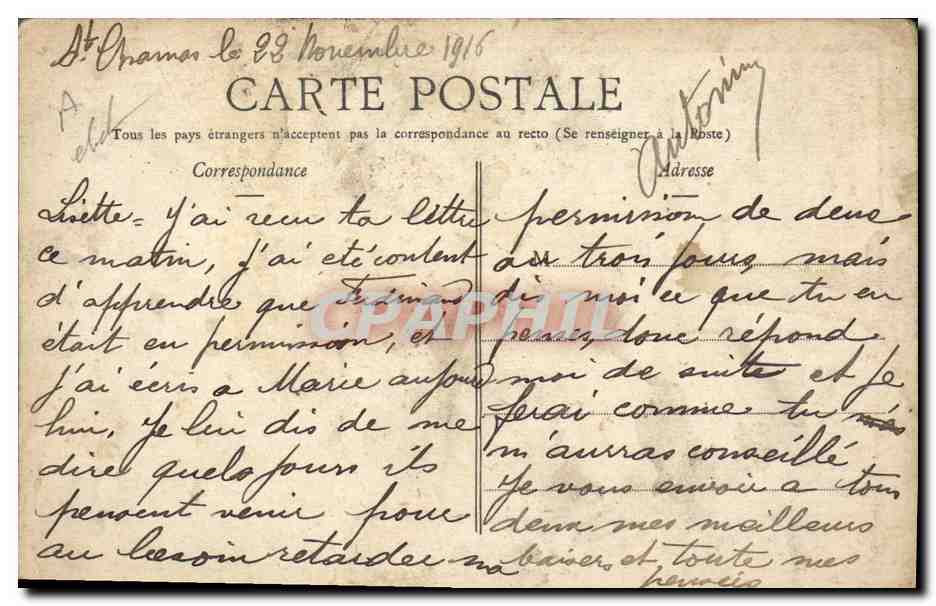 St Chamas le 22 Novembre 1916
CARTE POSTALE
Tous les pays étrangers n'acceptent pas la correspondance au recto (Se renseigner à la Poste)
Correspondance
Lisette = J'ai recu ta lettre
ce matin, j'ai eté content
d'apprendre que Ferdinand
était en permission, et
j'ai écris a Marie aujourd
hui, Je lui dis de me
dire quels jours ils
peuvent venir pour
au besoin retarder ma
Adresse
Antonin
permission de deux
ou trois jours, mais
dis moi ce que tu en
penses, donc répond
moi de suite et je
ferai comme tu
m'aurras conseillé
Je vous envoie a tous
deux mes meilleurs
baisers et toute mes
pensées
CPAPHIL